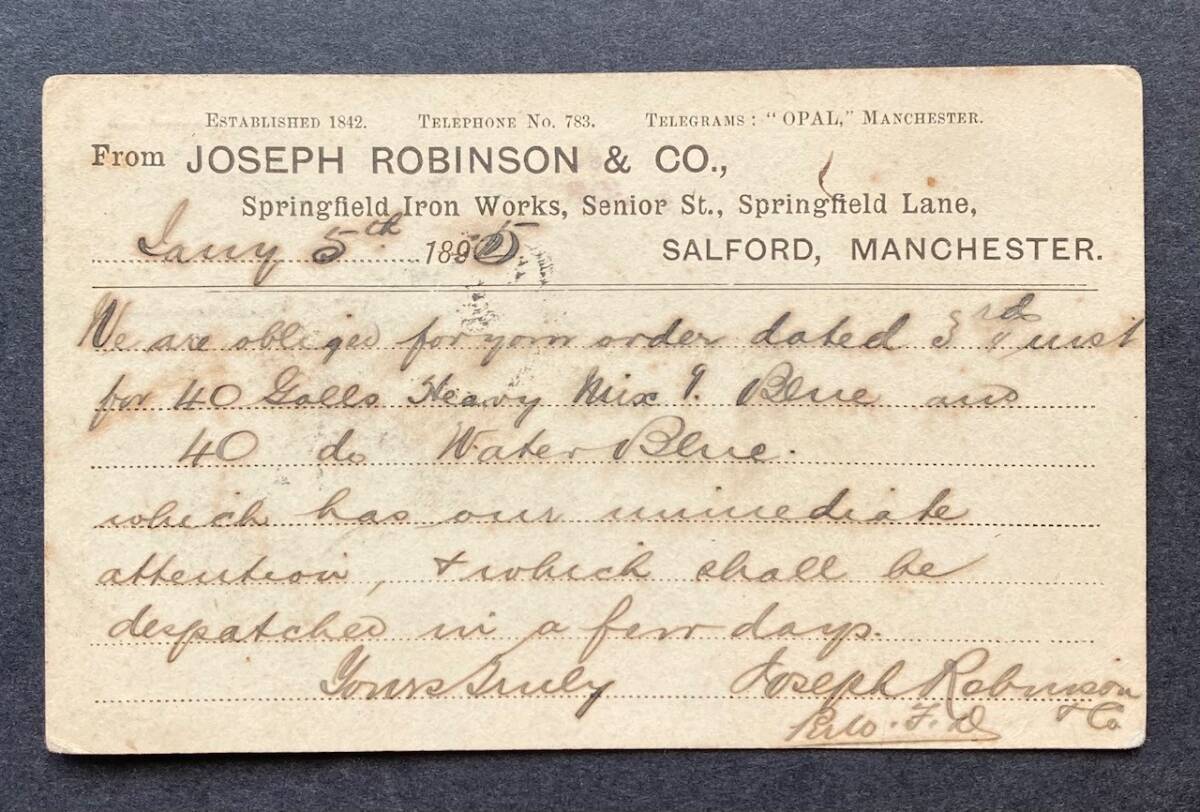 ESTABLISHED 1842. TELEPHONE No. 783. TELEGRAMS: "OPAL," MANCHESTER.
From JOSEPH ROBINSON & CO.,
Springfield Iron Works, Senior St., Springfield Lane,
Jany 5th 1895 SALFORD, MANCHESTER.
We are obliged for your order dated 3rd inst
for 40 Galls Heavy Mix 9. Blue and
40 do Water Blue.
which has our immediate
attention, & which shall be
despatched in a few days.
Yours truly Joseph Robinson
& Co